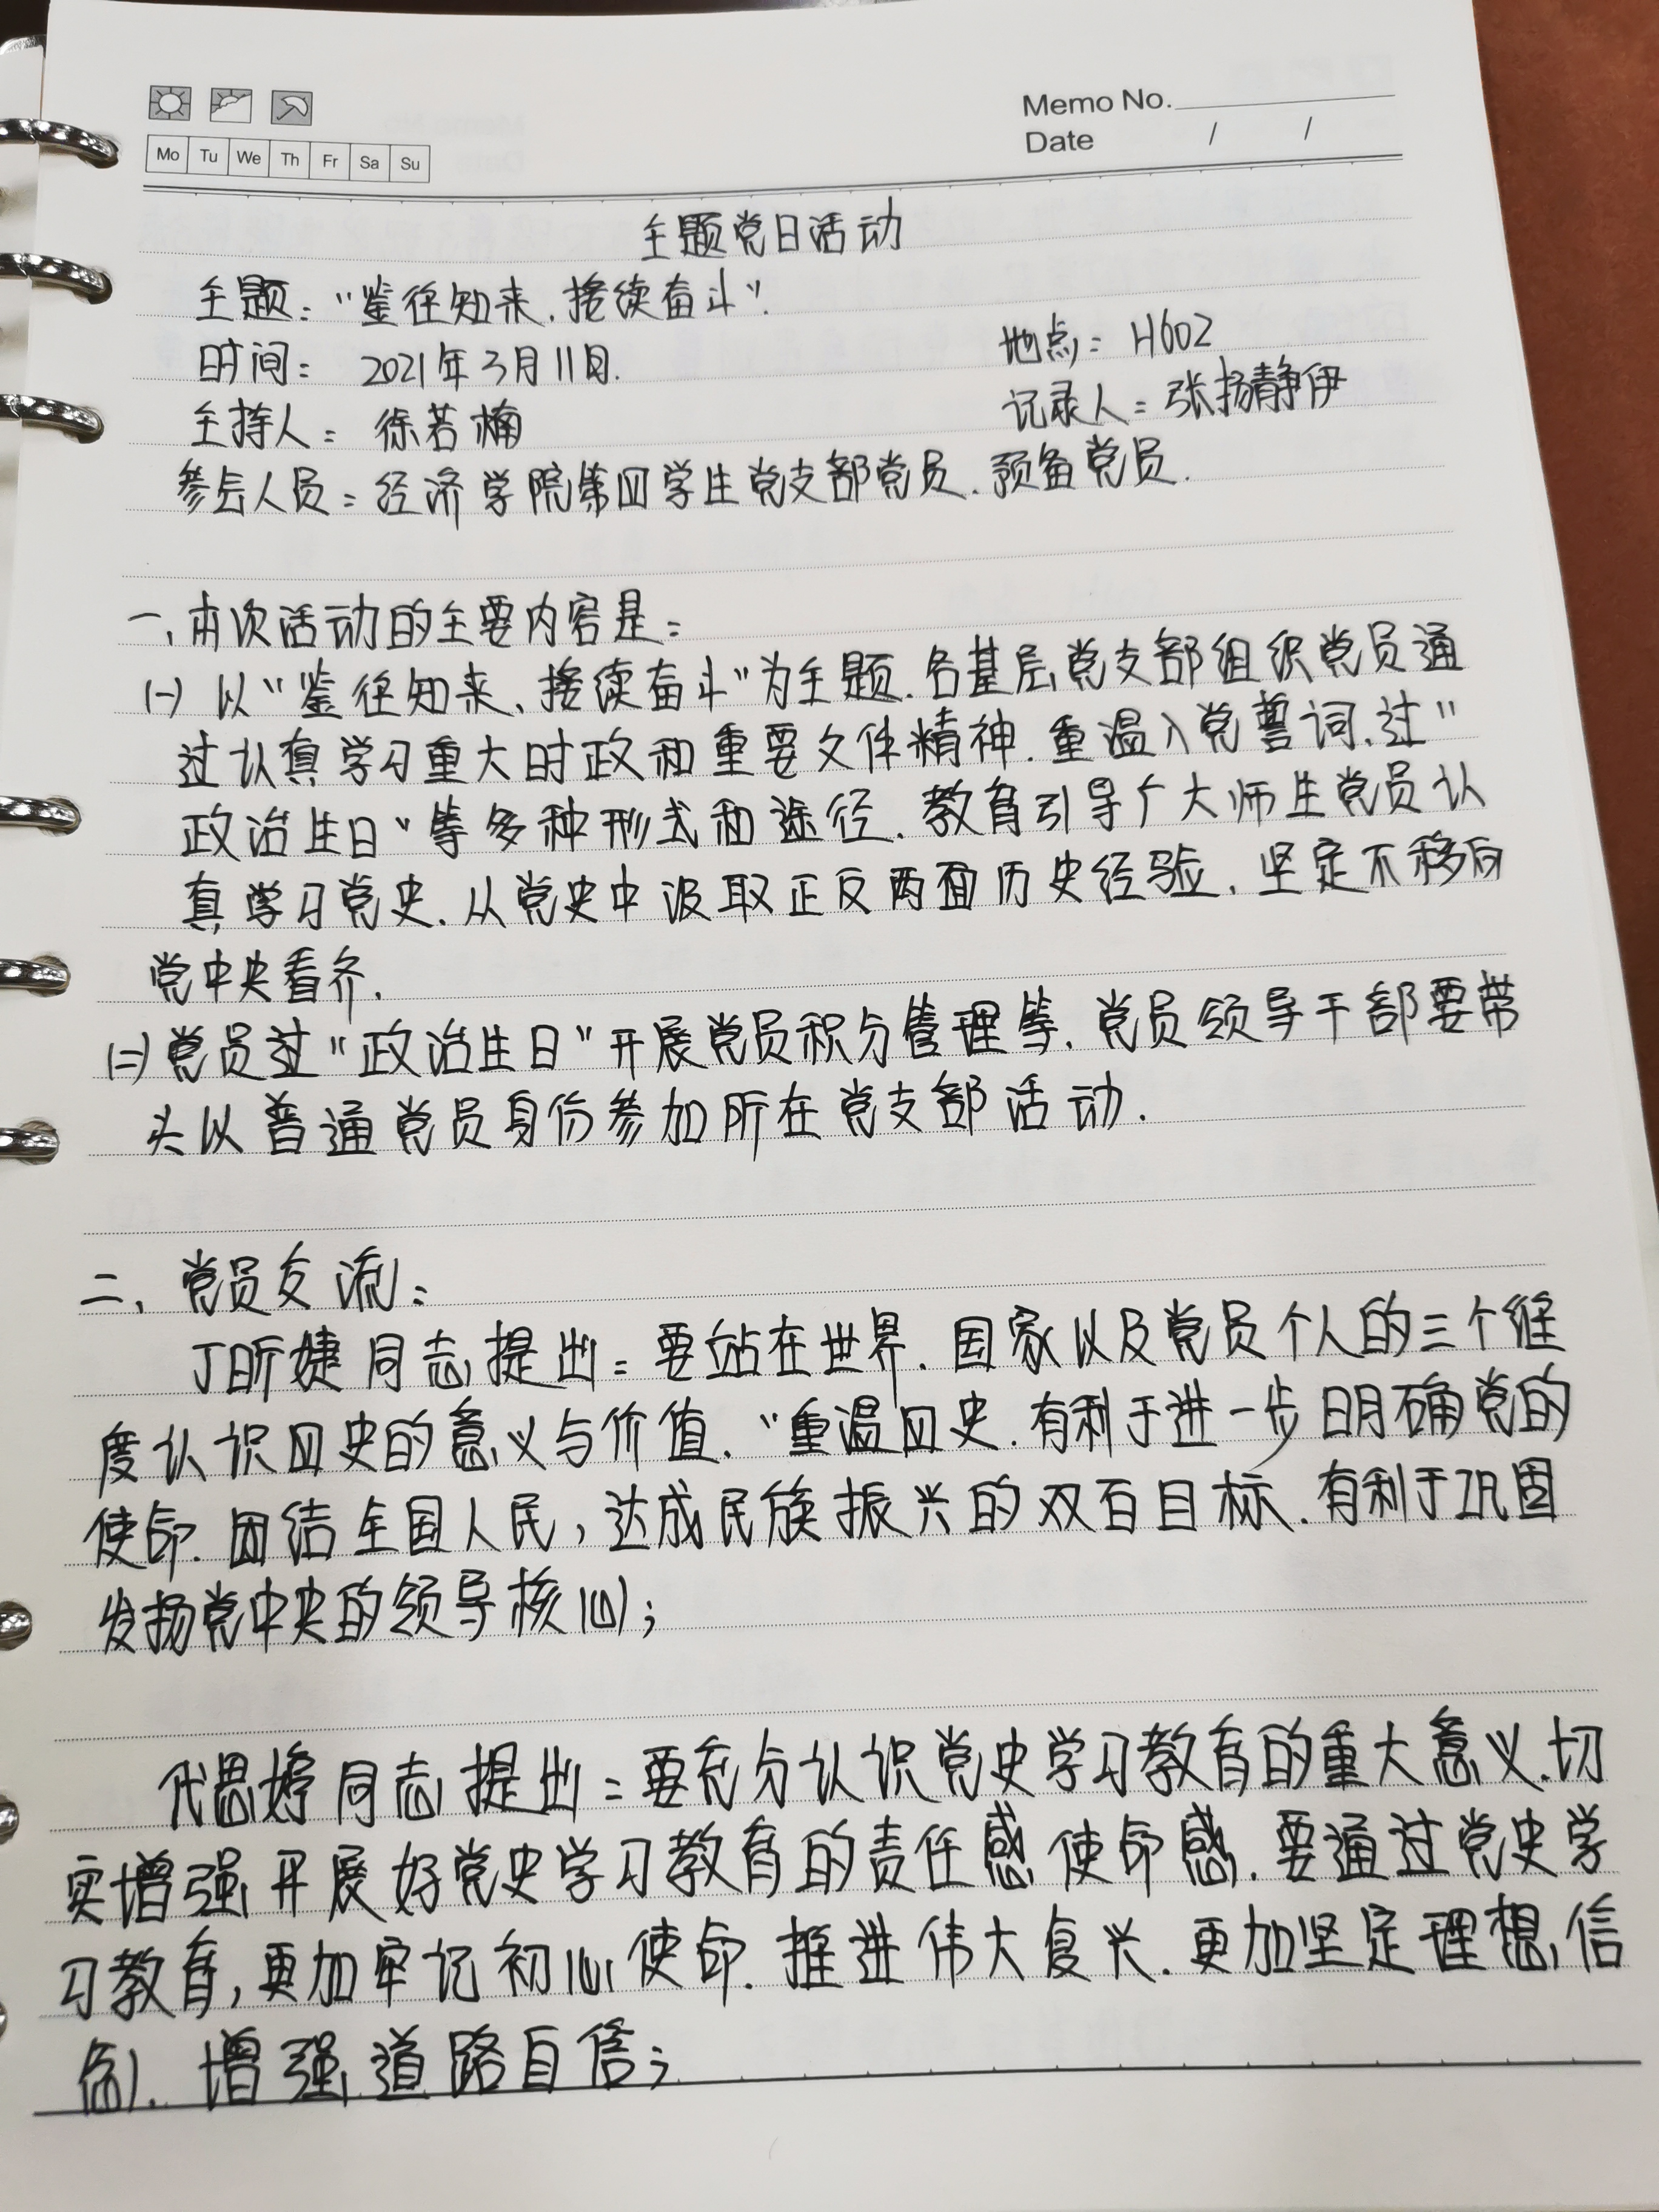 Memo No.
Date / /
Mo Tu We Th Fr Sa Su
主题党日活动
主题：“鉴往知来、接续奋斗”.
时间： 2021年3月11日.
地点：H602
主持人：徐若楠
记录人：张扬静伊
参会人员：经济学院第四学生党支部党员、预备党员.
一、本次活动的主要内容是：
(一) 以“鉴往知来、接续奋斗”为主题.各基层党支部组织党员通
过认真学习重大时政和重要文件精神.重温入党誓词、过“
政治生日”等多种形式和途径.教育引导广大师生党员认
真学习党史.从党史中汲取正反两面历史经验.坚定不移向
党中央看齐.
(二)党员过“政治生日”开展党员积分管理等.党员领导干部要带
头以普通党员身份参加所在党支部活动.
二、党员交流：
丁昕婕同志提出：要站在世界.国家以及党员个人的三个维
度认识四史的意义与价值.“重温四史.有利于进一步明确党的
使命.团结全国人民，达成民族振兴的双百目标.有利于巩固
发扬党中央的领导核心；
代思婷同志提出：要充分认识党史学习教育的重大意义.切
实增强开展好党史学习教育的责任感使命感.要通过党史学
习教育，更加牢记初心使命.推进伟大复兴.更加坚定理想信
念.增强道路自信；